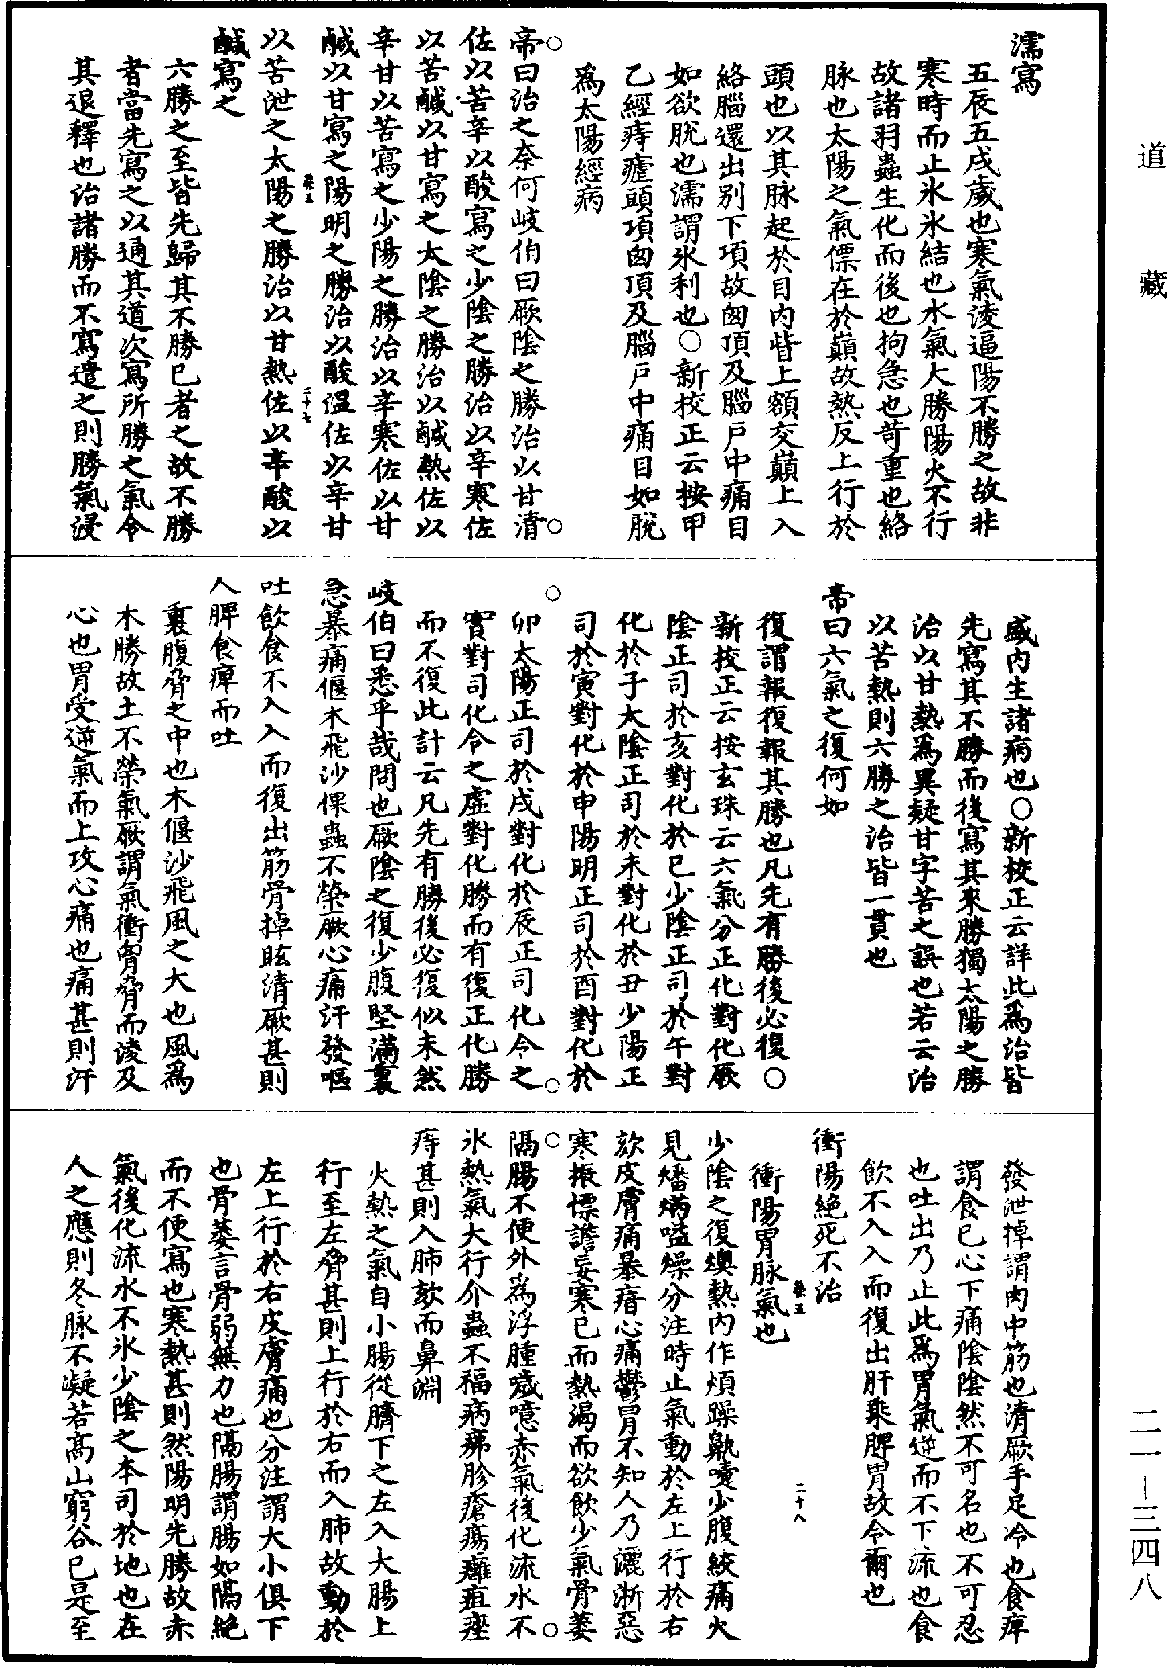 道藏
二一—三四八
濡寫
五辰五戌歲也寒氣淩逼陽不勝之故非
寒時而止氷氷結也水氣大勝陽火不行
故諸羽蟲生化而後也拘急也苛重也絡
脉也太陽之氣標在於巔故熱反上行於
頭也以其脉起於目内眥上額交巔上入
絡腦還出别下項故囟頂及腦戶中痛目
如欲脫也濡謂氷利也○新校正云按甲
乙經痔瘧頭項囟頂及腦戶中痛目如脫
爲太陽經病
帝曰治之奈何岐伯曰厥陰之勝治以甘清
佐以苦辛以酸寫之少陰之勝治以辛寒佐
以苦鹹以甘寫之太陰之勝治以鹹熱佐以
辛甘以苦寫之少陽之勝治以辛寒佐以甘
鹹以甘寫之陽明之勝治以酸温佐以辛甘
卷五
二十七
以苦泄之太陽之勝治以甘熱佐以辛酸以
鹹寫之
六勝之至皆先歸其不勝己者之故不勝
者當先寫之以通其道次寫所勝之氣令
其退釋也治諸勝而不寫遣之則勝氣浸
盛内生諸病也○新校正云詳此爲治皆
先寫其不勝而後寫其來勝獨太陽之勝
治以甘熱爲異疑甘字苦之誤也若云治
以苦熱則六勝之治皆一貫也
帝曰六氣之復何如
復謂報復報其勝也凡先有勝後必復○
新校正云按玄珠云六氣分正化對化厥
陰正司於亥對化於巳少陰正司於午對
化於子太陰正司於未對化於丑少陽正
司於寅對化於申陽明正司於酉對化於
卯太陽正司於戌對化於辰正司化令之
實對司化令之虚對化勝而有復正化勝
而不復此計云凡先有勝後必復似未然
岐伯曰悉乎哉問也厥陰之復少腹堅滿裏
急暴痛偃木飛沙倮蟲不榮厥心痛汗發嘔
吐飲食不入入而復出筋骨掉眩清厥甚則
入脾食痺而吐
裏腹脅之中也木偃沙飛風之大也風爲
木勝故土不榮氣厥謂氣衝胷脅而淩及
心也胃受逆氣而上攻心痛也痛甚則汗
發泄掉謂肉中筋也清厥手足冷也食痺
謂食已心下痛陰陰然不可名也不可忍
也吐出乃止此爲胃氣逆而不下流也食
飲不入入而復出肝乘脾胃故令爾也
衝陽絶死不治
衝陽胃脉氣也
卷五
二十八
少陰之復燠熱内作煩躁鼽嚏少腹絞痛火
見燔焫嗌燥分注時止氣動於左上行於右
欬皮膚痛暴瘖心痛鬱冒不知人乃灑淅惡
寒振慄譫妄寒已而熱渴而欲飲少氣骨萎
隔腸不便外爲浮腫噦噫赤氣後化流水不
氷熱氣大行介蟲不福病疿胗瘡瘍癰疽痤
痔甚則入肺欬而鼻淵
火熱之氣自小腸從臍下之左入大腸上
行至左脅甚則上行於右而入肺故動於
左上行於右皮膚痛也分注謂大小俱下
也骨萎言骨弱無力也隔腸謂腸如隔絶
而不便寫也寒熱甚則然陽明先勝故赤
氣後化流水不氷少陰之本司於地也在
人之應則冬脉不凝若高山窮谷已是至